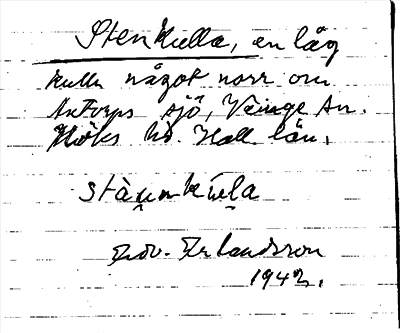 Stenkulla, en låg
kulle något norr om
sjö, Veinge sn.
Höks hd. Hall. län.
stà̀nkula
Erlandsson
1942.